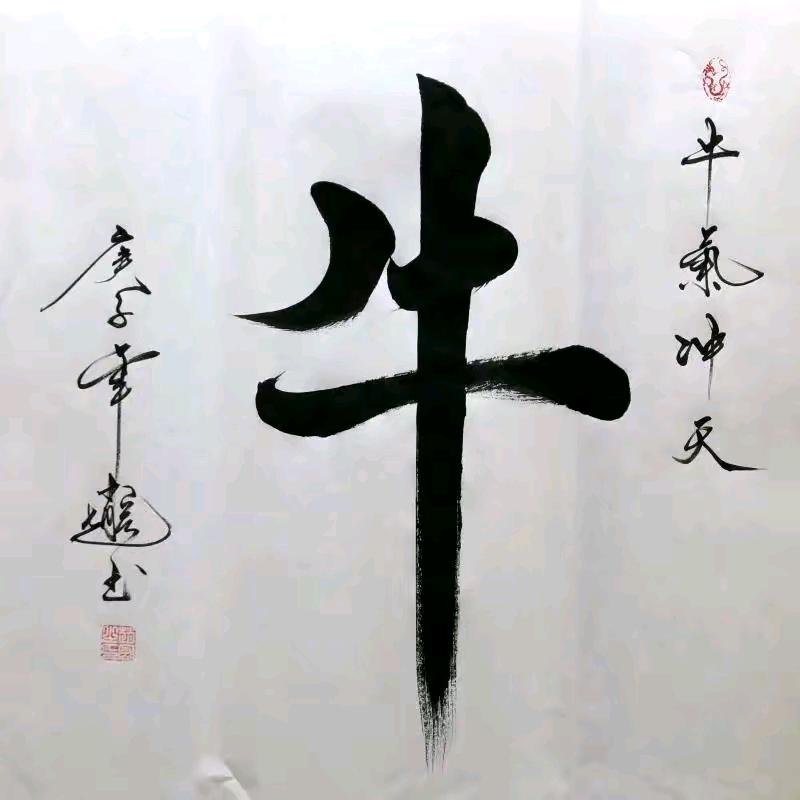 牛氣冲天
牛
庚子年
书